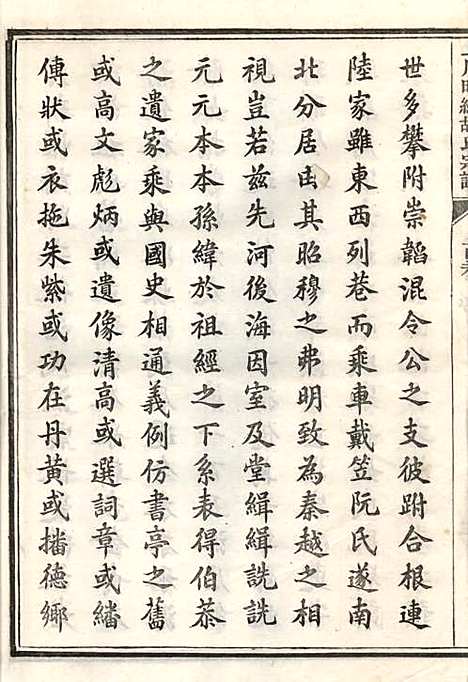 世多攀附崇韜混令公之支彼跗合根連
陸家雖東西列巷而乘車戴笠阮氏遂南
北分居由其昭穆之弗明致為秦越之相
視豈若兹先河後海因室及堂緝緝詵詵
元元本本孫緯於祖經之下系表得伯恭
之遺家乘與國史相通義例仿書亭之舊
或高文彪炳或遺像清高或選詞章或繙
傳狀或衣拖朱紫或功在丹黃或播德鄉
明經胡氏宗譜